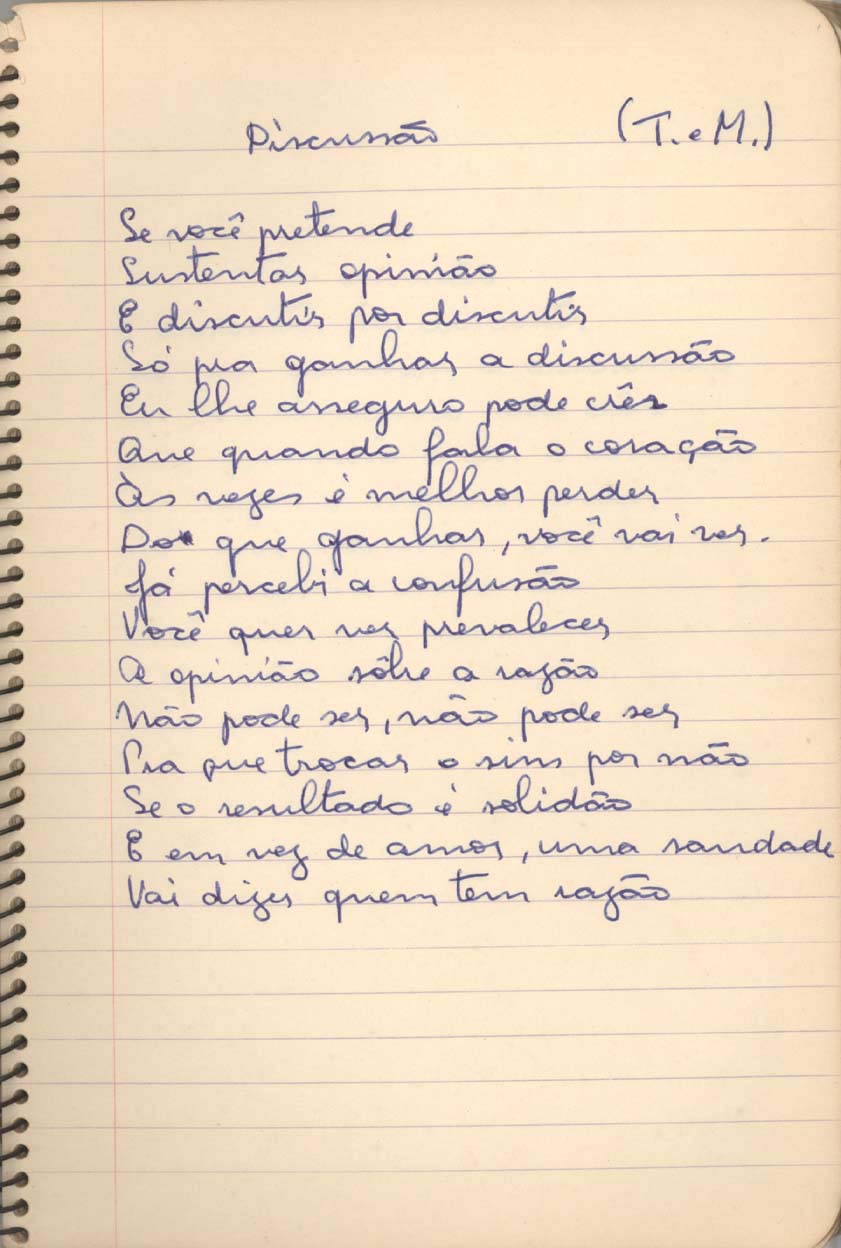 Discussão (T. e M.)
Se você pretende
Sustentar opinião
E discutir por discutir
Só pra ganhar a discussão
Eu lhe asseguro pode crêr
Que quando fala o coração
Às vezes é melhor perder
Do que ganhar, você vai ver.
Já percebi a confusão
Você quer ver prevalecer
A opinião sôbre a razão
Não pode ser, não pode ser
Pra que trocar o sim por não
Se o resultado é solidão
E em vez de amor, uma saudade
Vai dizer quem tem razão